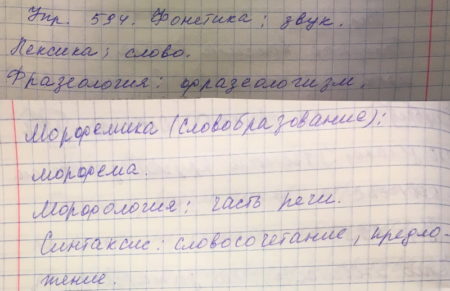 Упр. 594. Фонетика: звук.
Лексика: слово.
Фразеология: фразеологизм.
Морфемика (словобразование):
морфема.
Морфология: часть речи.
Синтаксис: словосочетание, предло-
жение.